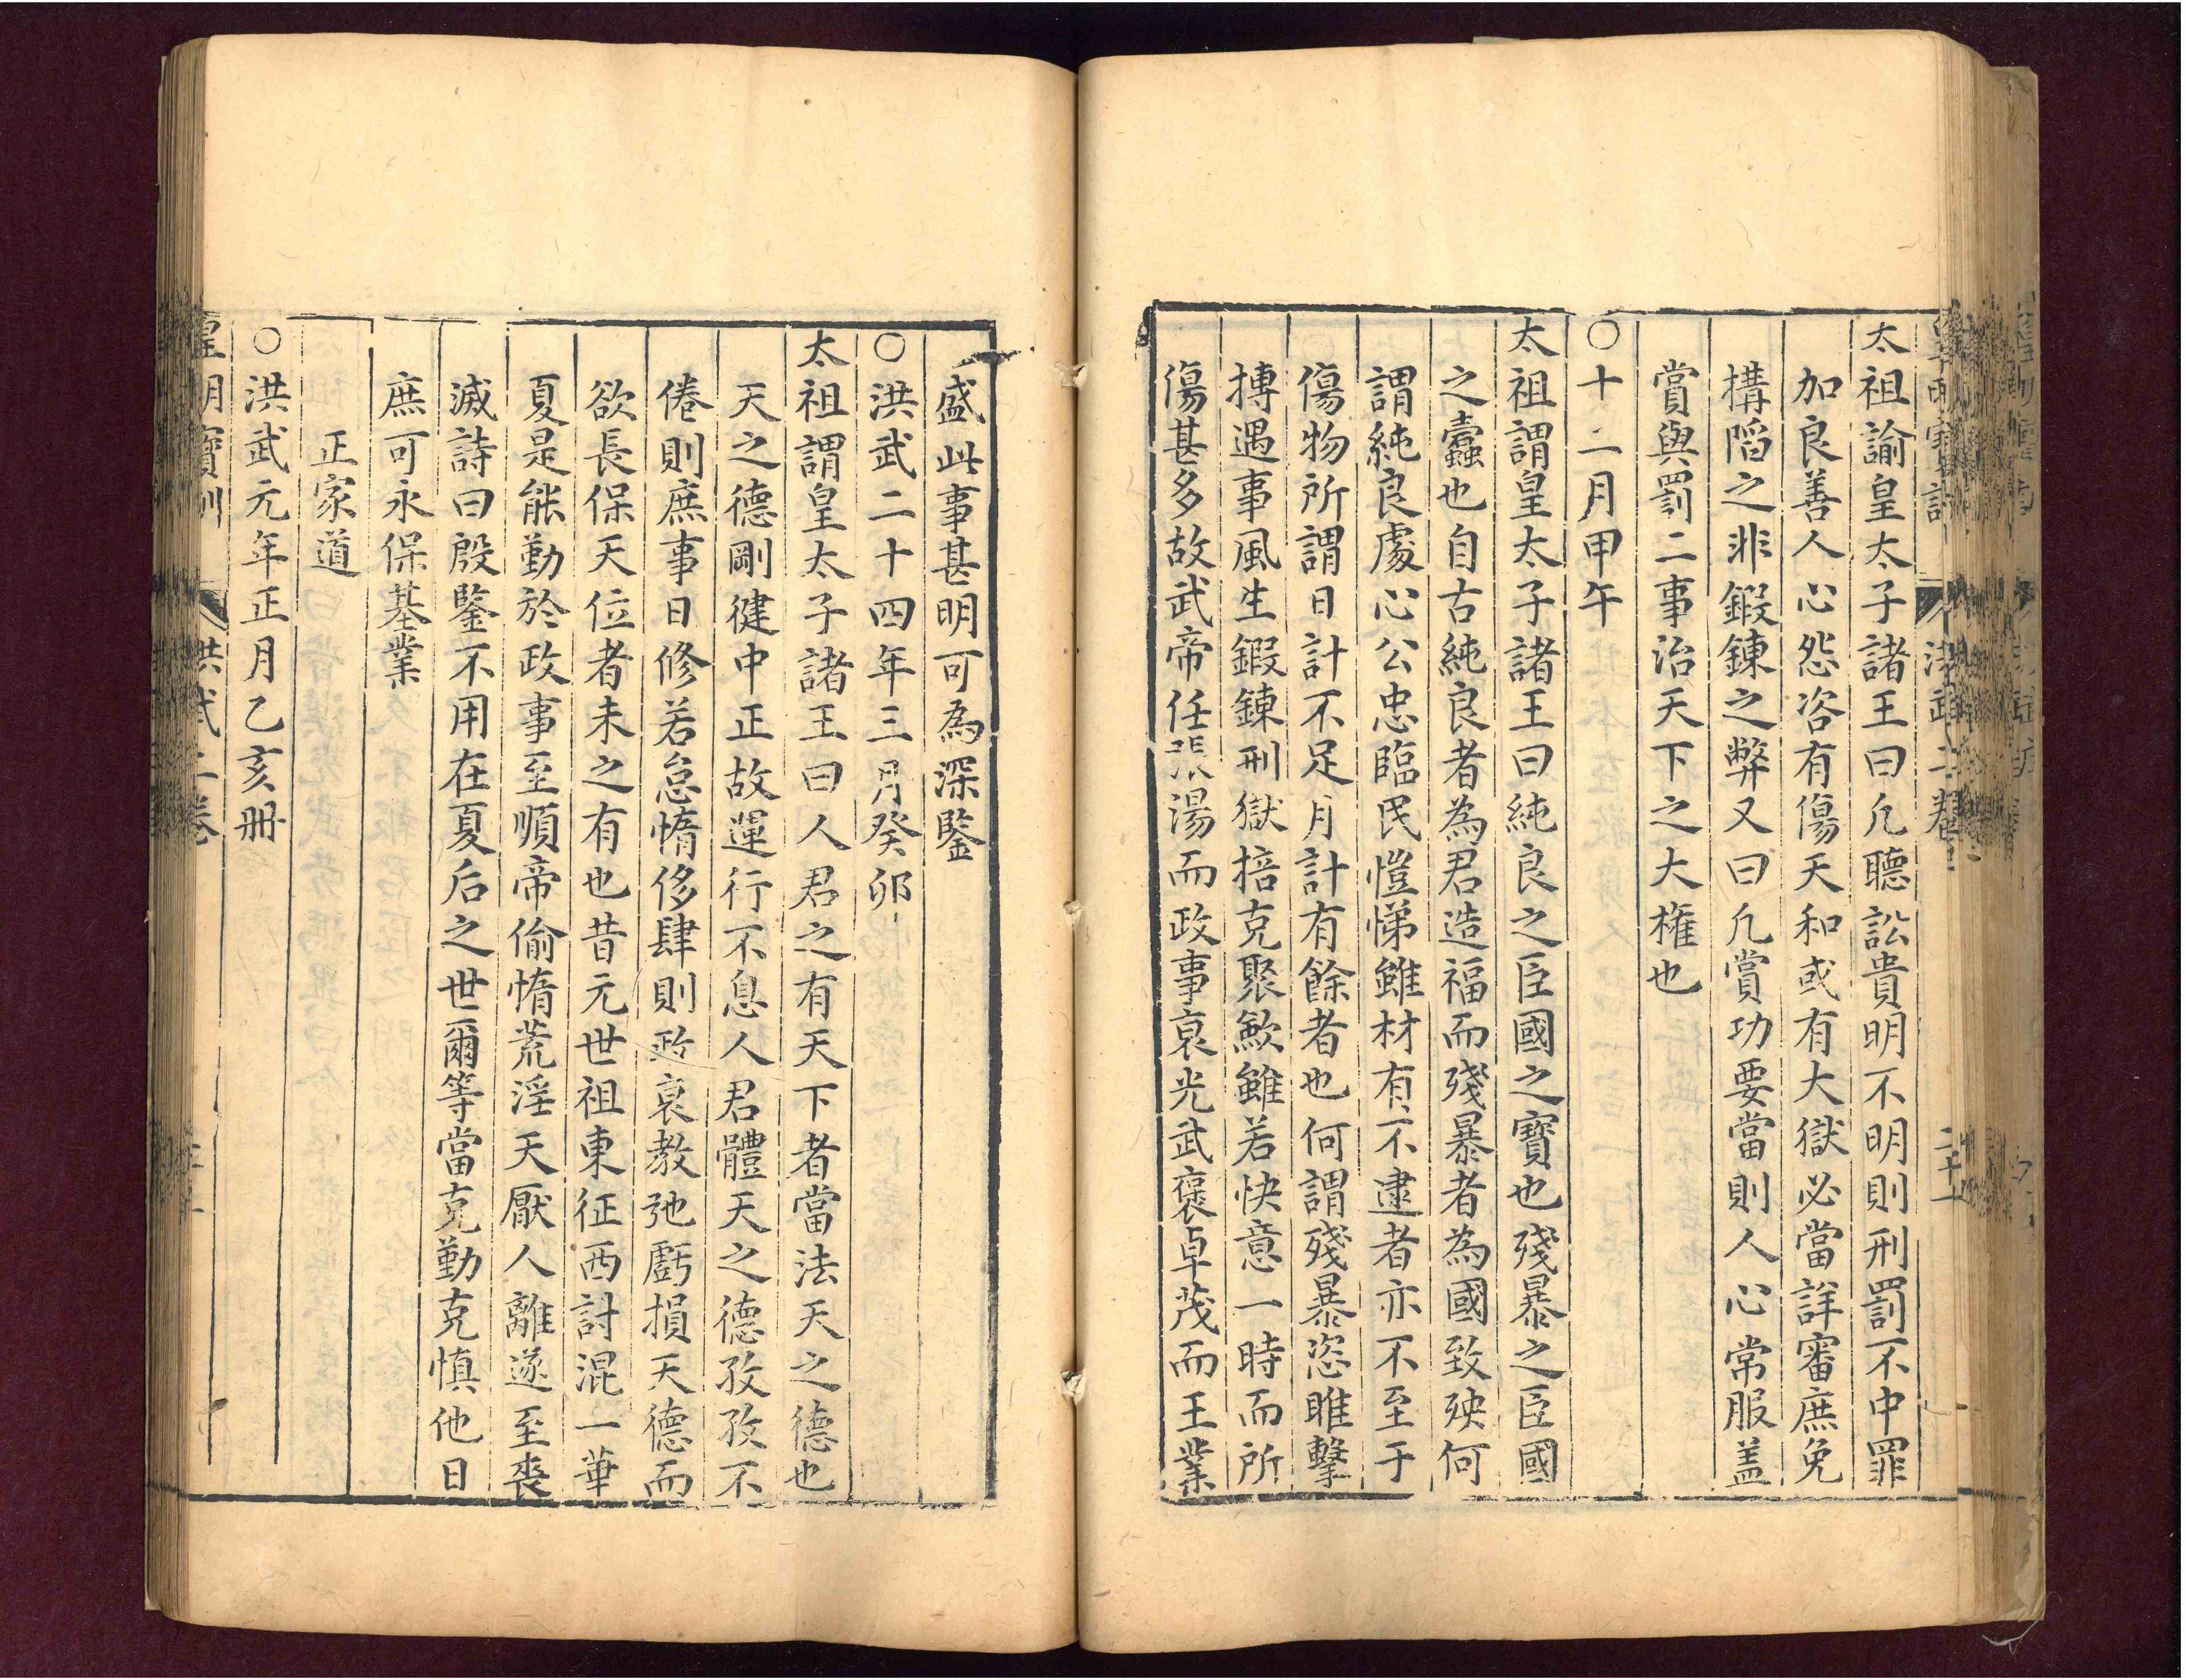 皇明寶訓 洪武二卷 二十一
太祖諭皇太子諸王曰凢聽訟貴明不明則刑罰不中罪
加良善人心怨咨有傷天和或有大獄必當詳審庶免
搆陷之非鍛鍊之弊又曰凢賞功要當則人心常服盖
賞與罰二事治天下之大權也
○十二月甲午
太祖謂皇太子諸王曰純良之臣國之寶也殘暴之臣國
之蠧也自古純良者為君造福而殘暴者為國致殃何
謂純良處心公忠臨民愷悌雖材有不逮者亦不至于
傷物所謂日計不足月計有餘者也何謂殘暴恣睢擊
搏遇事風生鍛鍊刑獄掊克聚歛雖若快意一時而所
傷甚多故武帝任張湯而政事衰光武褒卓茂而王業
盛此事甚明可為深鑒
○洪武二十四年三月癸卯
太祖謂皇太子諸王曰人君之有天下者當法天之德也
天之德剛健中正故運行不息人君體天之德孜孜不
倦則庶事日修若怠惰侈肆則政衰教弛虧損天德而
欲長保天位者未之有也昔元世祖東征西討混一華
夏是能勤於政事至順帝偷惰荒淫天厭人離遂至喪
滅詩曰殷鑒不用在夏后之世爾等當克勤克慎他日
庶可永保基業
正家道
○洪武元年正月乙亥冊
皇明寶訓 洪武二卷